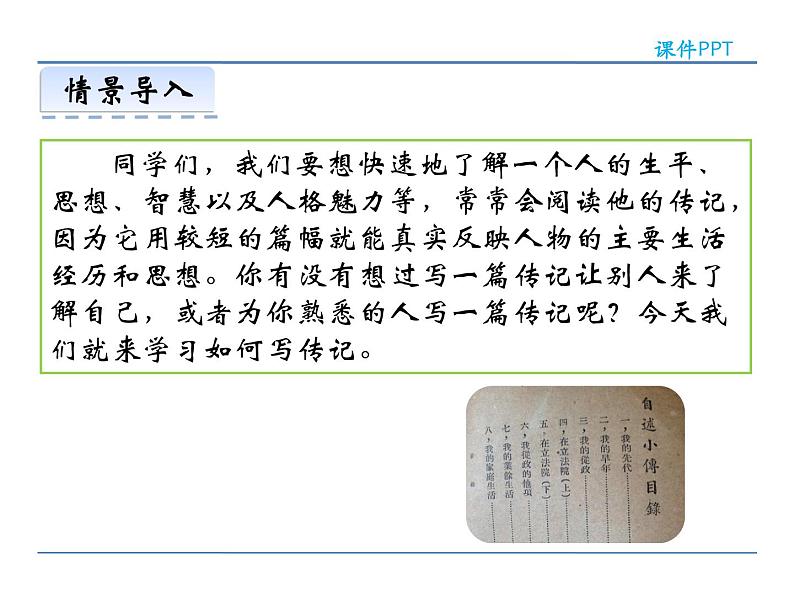 课件PPT
情景导入
同学们，我们要想快速地了解一个人的生平、
思想、智慧以及人格魅力等，常常会阅读他的传记，
因为它用较短的篇幅就能真实反映人物的主要生活
经历和思想。你有没有想过写一篇传记让别人来了
解自己，或者为你熟悉的人写一篇传记呢？今天我
们就来学习如何写传记。
自述小傳目錄
一，我的先代
二，我的早年
三，我的從政
四，在立法院（上）
五，在立法院（下）
六，我從政的他項
七，我的業餘生活
八，我的家庭生活